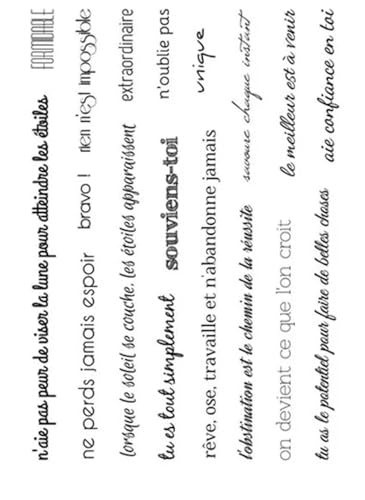 n'aie pas peur de viser la lune pour atteindre les étoiles FORMIDABLE
ne perds jamais espoir bravo ! rien n'est impossible
lorsque le soleil se couche, les étoiles apparaissent extraordinaire
tu es tout simplement souviens-toi n'oublie pas
rêve, ose, travaille et n'abandonne jamais unique
l'obstination est le chemin de la réussite savoure chaque instant
on devient ce que l'on croit le meilleur est à venir
tu as le potentiel pour faire de belles choses aie confiance en toi